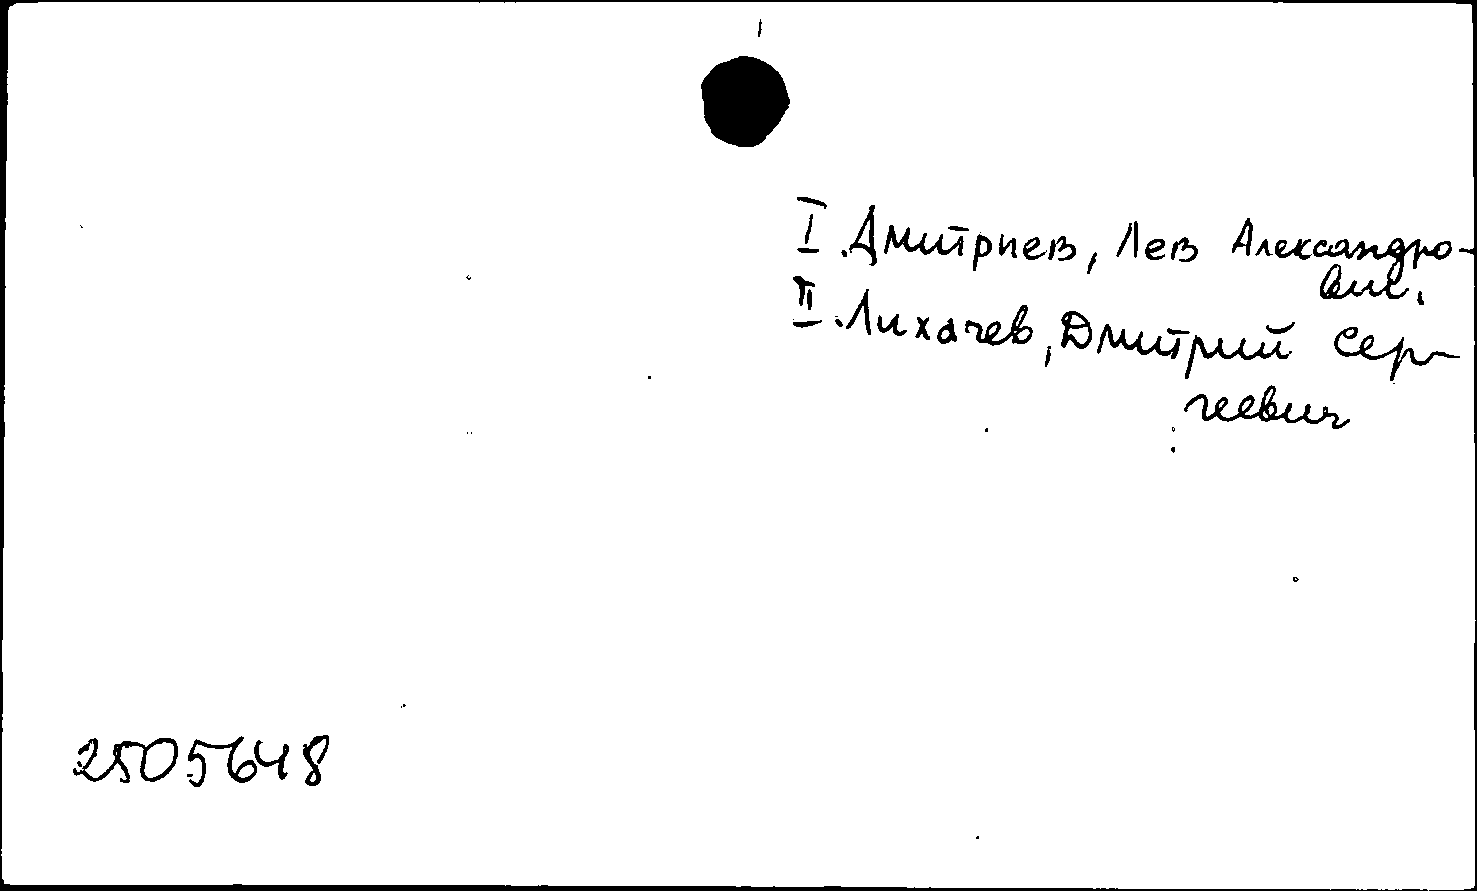 I. Дмитриев, Лев Александро-
вич.
II. Лихачев, Дмитрий Сер-
геевич
2505648